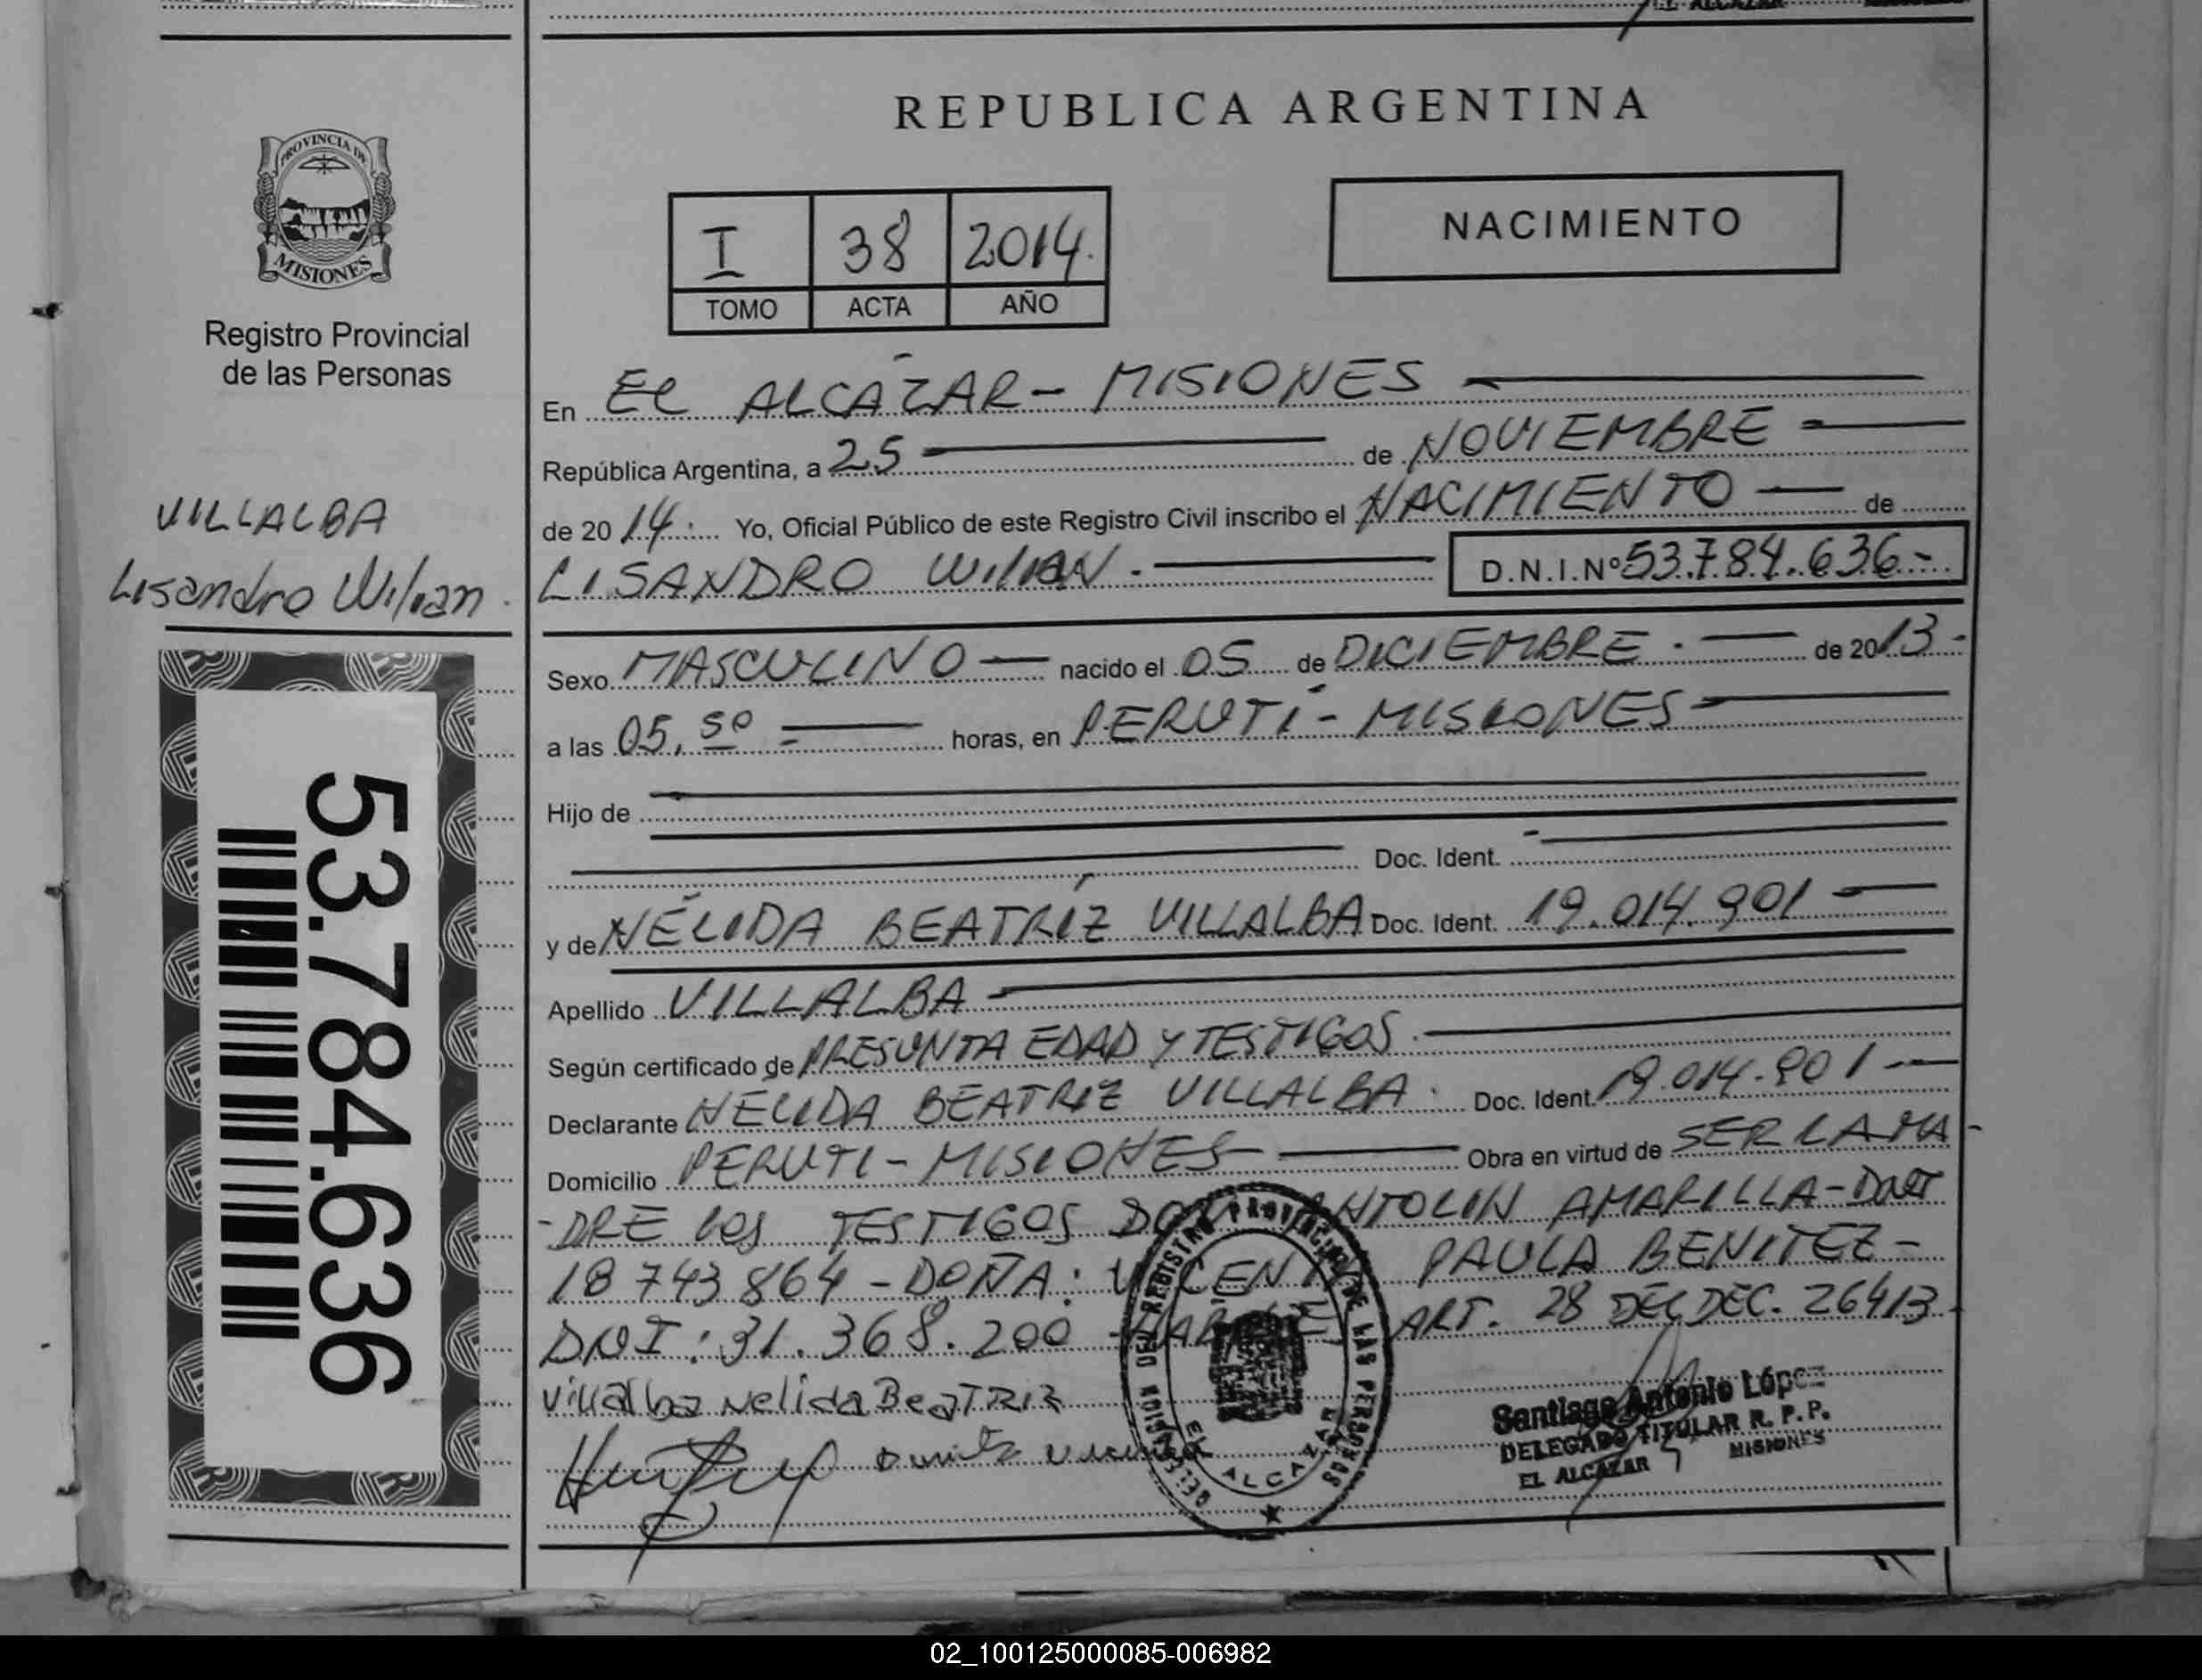 REPUBLICA ARGENTINA
PROVINCIA DE
MISIONES
Registro Provincial
de las Personas
VILLALBA
Lisandro Wilian.
53.784.636
I 38 2014.
TOMO ACTA AÑO
NACIMIENTO
En El ALCÁZAR - MISIONES
República Argentina, a 25 de NOVIEMBRE
de 2014. Yo, Oficial Público de este Registro Civil inscribo el NACIMIENTO de
LISANDRO WILIAN. D.N.I.Nº 53.784.636-
Sexo MASCULINO nacido el 05 de DICIEMBRE. de 2013-
a las 05,50 horas, en PERUTÍ - MISIONES
Hijo de
Doc. Ident.
y de NÉLIDA BEATRÍZ VILLALBA Doc. Ident. 19.014.901
Apellido VILLALBA
Según certificado de PRESUNTA EDAD Y TESTIGOS.
Declarante NÉLIDA BEATRIZ VILLALBA. Doc. Ident. 19.014.901
Domicilio PERUTI - MISIONES Obra en virtud de SER LA MA-
-DRE los TESTIGOS DON ANTOLIN AMARILLA - DNI
18743864 - DOÑA: PAULA BENITEZ -
DNI: 31.368.200 ART. 28 DEL DEC. 26413.
Villalba Nelida BeaTRIZ
DELEGACION DEL REGISTRO PROVINCIAL DE LAS PERSONAS
EL ALCAZAR
Santiago Antonio López
DELEGADO TITULAR R. P. P.
EL ALCAZAR MISIONES
02_100125000085-006982